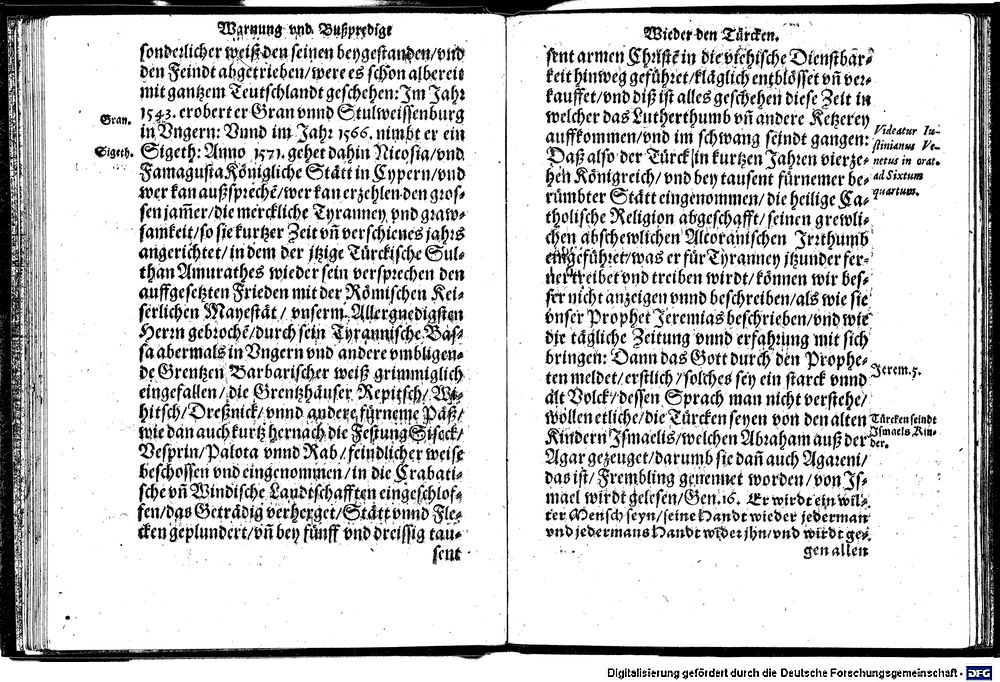 Warnung vnd Bußpredigt
sonderlicher weiß den seinen beygestanden/vnd
den Feindt abgetrieben/were es schon albereit
mit gantzem Teutschlandt geschehen: Im Jahr
1543. erobert er Gran vnnd Stulweissenburg
Gran.
in Vngern: Vnnd im Jahr 1566. nimbt er ein
Sigeth.
Sigeth: Anno 1571. gehet dahin Nicosia/vnd
Famagusta Königliche Stätt in Cypern/vnd
wer kan außsprechē/wer kan erzehlen den gros-
sen jam̄er/die merckliche Tyranney vnd graw-
samkeit/so sie kurtzer Zeit vn̄ verschienes jahrs
angerichtet/in dem der jtzige Türckische Sul-
than Amurathes wieder sein versprechen den
auffgesetzten Frieden mit der Römischen Kei-
serlichen Mayestät/vnserm Allergnedigsten
Herrn gebrochē/durch sein Tyrannische Bas-
sa abermals in Vngern vnd andere vmbligen-
de Grentzen Barbarischer weiß grimmiglich
eingefallen/die Grentzhäuser Repitsch/Wi-
hitsch/Dreßnick/vnnd andere fürneme Päß/
wie dan auch kurtz hernach die Festung Siseck/
Vesprin/Palota vnnd Rab/feindlicher weise
beschossen vnd eingenommen/in die Crabati-
sche vn̄ Windische Landtschafften eingeschlof-
fen/das Geträdig verherget/Stätt vnnd Fle-
cken geplundert/vn̄ bey fünff vnd dreissig tau-
sent
Wieder den Türcken.
sent armen Christē in die viehische Dienstbar-
keit hinweg geführet/kläglich entblösset vn̄ ver-
kauffet/vnd diß ist alles geschehen diese Zeit in
welcher das Lutherthumb vn̄ andere Ketzerey
auffkommen/vnd im schwang seindt gangen:
Daß also der Türck in kurtzen Jahren vierze-
hen Königreich/vnd bey tausent fürnemer be-
rümbter Stätt eingenommen/die heilige Ca-
tholische Religion abgeschafft/seinen grewli-
chen abschewlichen Alcoranischen Irrthumb
eingeführet/was er für Tyranney jtzunder fer-
ner treibet vnd treiben wirdt/können wir bes-
ser nicht anzeigen vnnd beschreiben/als wie sie
vnser Prophet Jeremias beschrieben/vnd wie
die tägliche Zeitung vnnd erfahrung mit sich
bringen: Dann das Gott durch den Prophe-
ten meldet/erstlich/solches sey ein starck vnnd
alt Volck/dessen Sprach man nicht verstehe/
wöllen etliche/die Türcken seyen von den alten
Kindern Ismaelis/welchen Abraham auß der
Agar gezeuget/darumb sie dan̄ auch Agareni/
das ist/Frembling genennet worden/von Is-
mael wirdt gelesen/Gen. 16. Er wirdt ein wil-
ter Mensch seyn/seine Handt wieder jederman
vnd jedermans Handt wider jhn/vnd wirdt ge-
gen allen
Videatur Iu-
stinianus Ve-
netus in orat.
ad Sixtum
quartum.
Jerem. 5.
Türcken seindt
Ismaels Kin-
der.
Digitalisierung gefördert durch die Deutsche Forschungsgemeinschaft - DFG